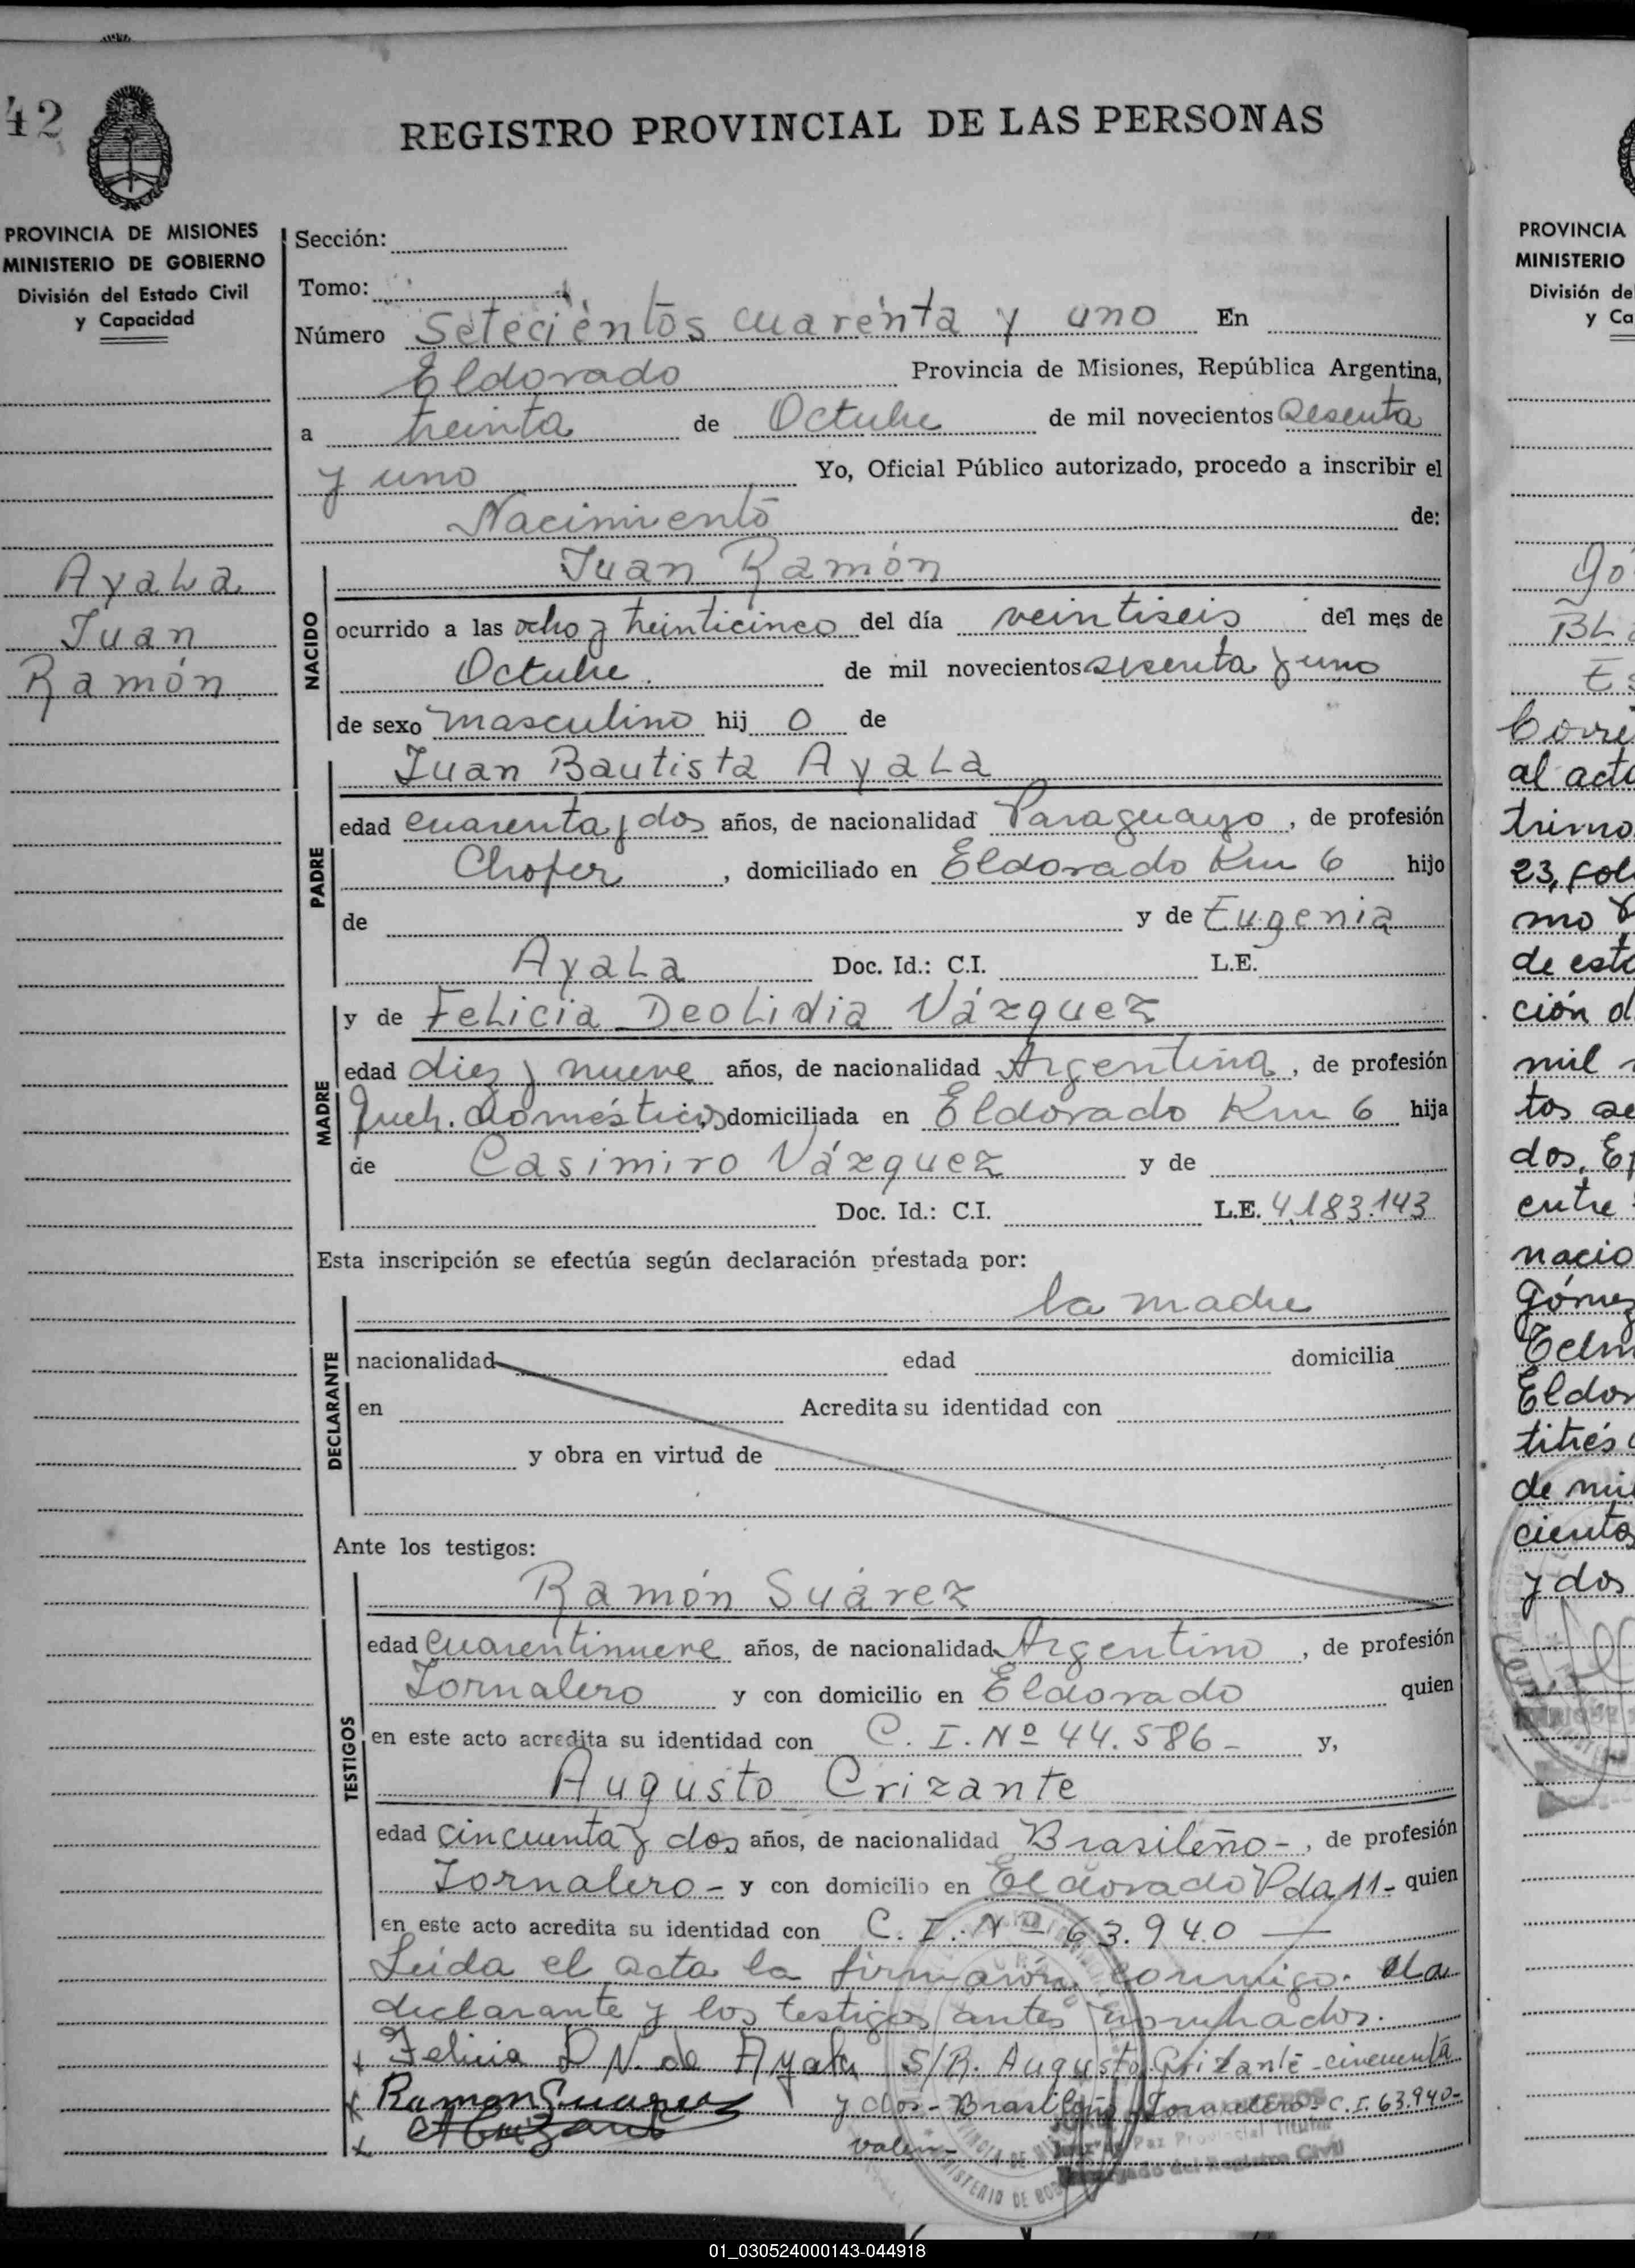 42
REGISTRO PROVINCIAL DE LAS PERSONAS
PROVINCIA DE MISIONES
MINISTERIO DE GOBIERNO
División del Estado Civil
y Capacidad
Ayala
Juan
Ramón
Sección:
Tomo:
Número Setecientos cuarenta y uno En
Eldorado Provincia de Misiones, República Argentina,
a treinta de Octubre de mil novecientos sesenta
y uno Yo, Oficial Público autorizado, procedo a inscribir el
Nacimiento de:
NACIDO
Juan Ramón
ocurrido a las ocho y treinticinco del día veintiseis del mes de
Octubre. de mil novecientos sesenta y uno
de sexo masculino hij o de
PADRE
Juan Bautista Ayala
edad cuarenta y dos años, de nacionalidad Paraguayo, de profesión
Chofer, domiciliado en Eldorado Km 6 hijo
de y de Eugenia
Ayala Doc. Id.: C.I. L.E.
MADRE
y de Felicia Deolidia Vázquez
edad diez y nueve años, de nacionalidad Argentina, de profesión
Queh. domésticos, domiciliada en Eldorado Km 6 hija
de Casimiro Vázquez y de
Doc. Id.: C.I. L.E. 4.183.143
Esta inscripción se efectúa según declaración prestada por:
DECLARANTE
la madre
nacionalidad edad domicilia
en Acredita su identidad con
y obra en virtud de
Ante los testigos:
TESTIGOS
Ramón Suárez
edad cuarentinueve años, de nacionalidad Argentino, de profesión
Jornalero y con domicilio en Eldorado quien
en este acto acredita su identidad con C. I. Nº 44.586- y,
Augusto Crizante
edad cincuenta y dos años, de nacionalidad Brasileño-, de profesión
Jornalero- y con domicilio en Eldorado Pda 11- quien
en este acto acredita su identidad con C. I. Nº 63.940
Leida el acta la firmaron conmigo. la
declarante y los testigos antes nombrados.
Felicia D V. de Ayala S/R. Augusto Crizante-cincuenta
Ramon Suarez y dos-Brasileño-Jornalero-C.I. 63.940-
valen-
Juez de Paz Provincial Titular
Encargado del Registro Civil
PROVINCIA
MINISTERIO
División de
y Ca
Gó
BL
Es
Corre
al acta
trimo
23, fol
mo
de esta
ción d
mil
tos se
dos. E
entre
nacio
Gómez
Telm
Eldor
titrés
de mil
ciento
y dos
01_030524000143-044918